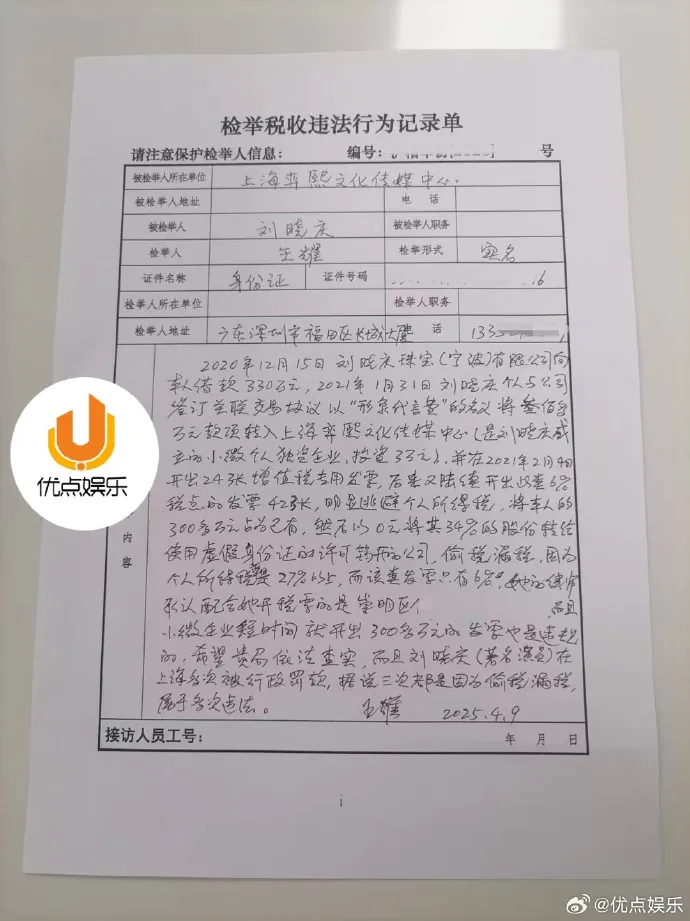 检举税收违法行为记录单
请注意保护检举人信息： 编号： 号
被检举人所在单位 上海弈熙文化传媒中心
被检举人地址 电 话
被检举人 刘晓庆 被检举人职务
检举人 王耀 检举形式 实名
证件名称 身份证 证件号码 16
检举人所在单位 检举人职务
检举人地址 广东深圳市福田区长城大厦 话 133
内容
2020年12月15日刘晓庆珠宝(宁波)有限公司向
本人借款330万元,2021年1月31日刘晓庆个人与公司
签订关联交易协议以"形象代言费"的名义将叁佰多
万元款项转入上海弈熙文化传媒中心(是刘晓庆成
立的小微个人独资企业,投资3万元),并在2021年2月4日
开出24张增值税专用发票,后来又陆续开出此套6%
税点的发票42张,明显逃避个人所得税,将本人的
300多万元占为己有,然后以0元将其34%的股份转给
使用虚假身份证的许可筠所的公司,偷税漏税,因为
个人所得税是27%以上,而该套发票只有6%,她的律师
承认配合她开税票的是崇明区 而且
小微企业短时间就开出300多万元的发票也是违规
的,希望贵局依法查实,而且刘晓庆(著名演员)在
上海多次被行政罚款,据说三次都是因为偷税漏税,
属于多次违法。 王耀 2025.4.9
接访人员工号： 年 月 日
1
优点娱乐
@优点娱乐